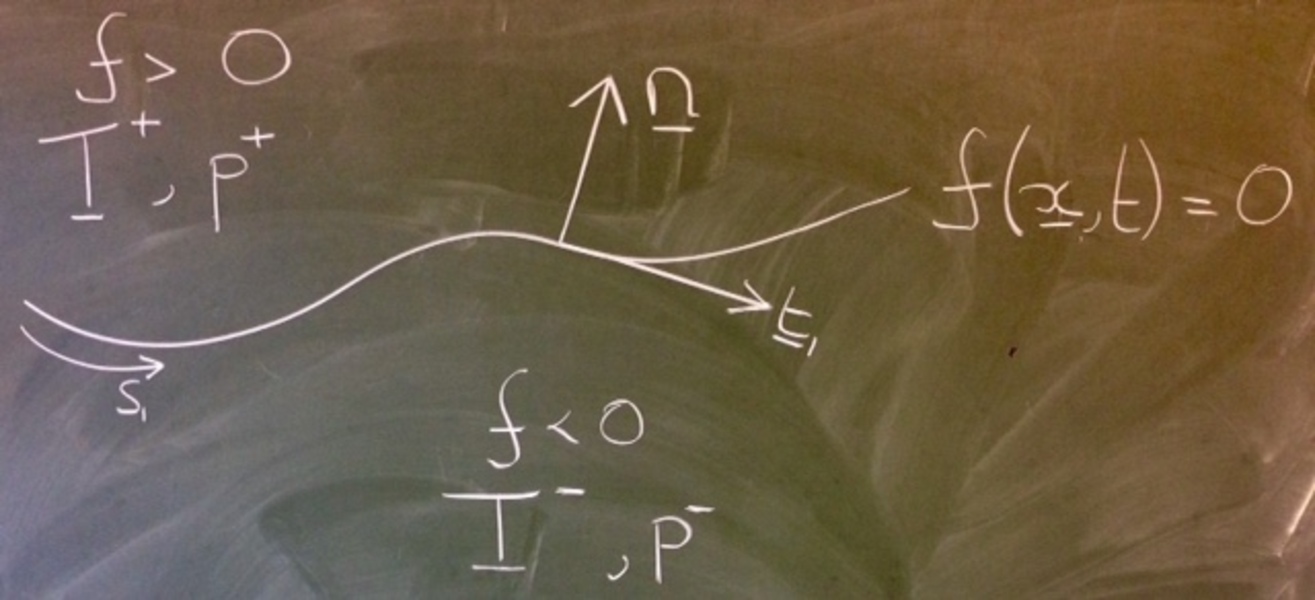 f > 0
T⁺, p⁺
n
f(x, t) = 0
t₁
s₁
f < 0
T⁻, p⁻